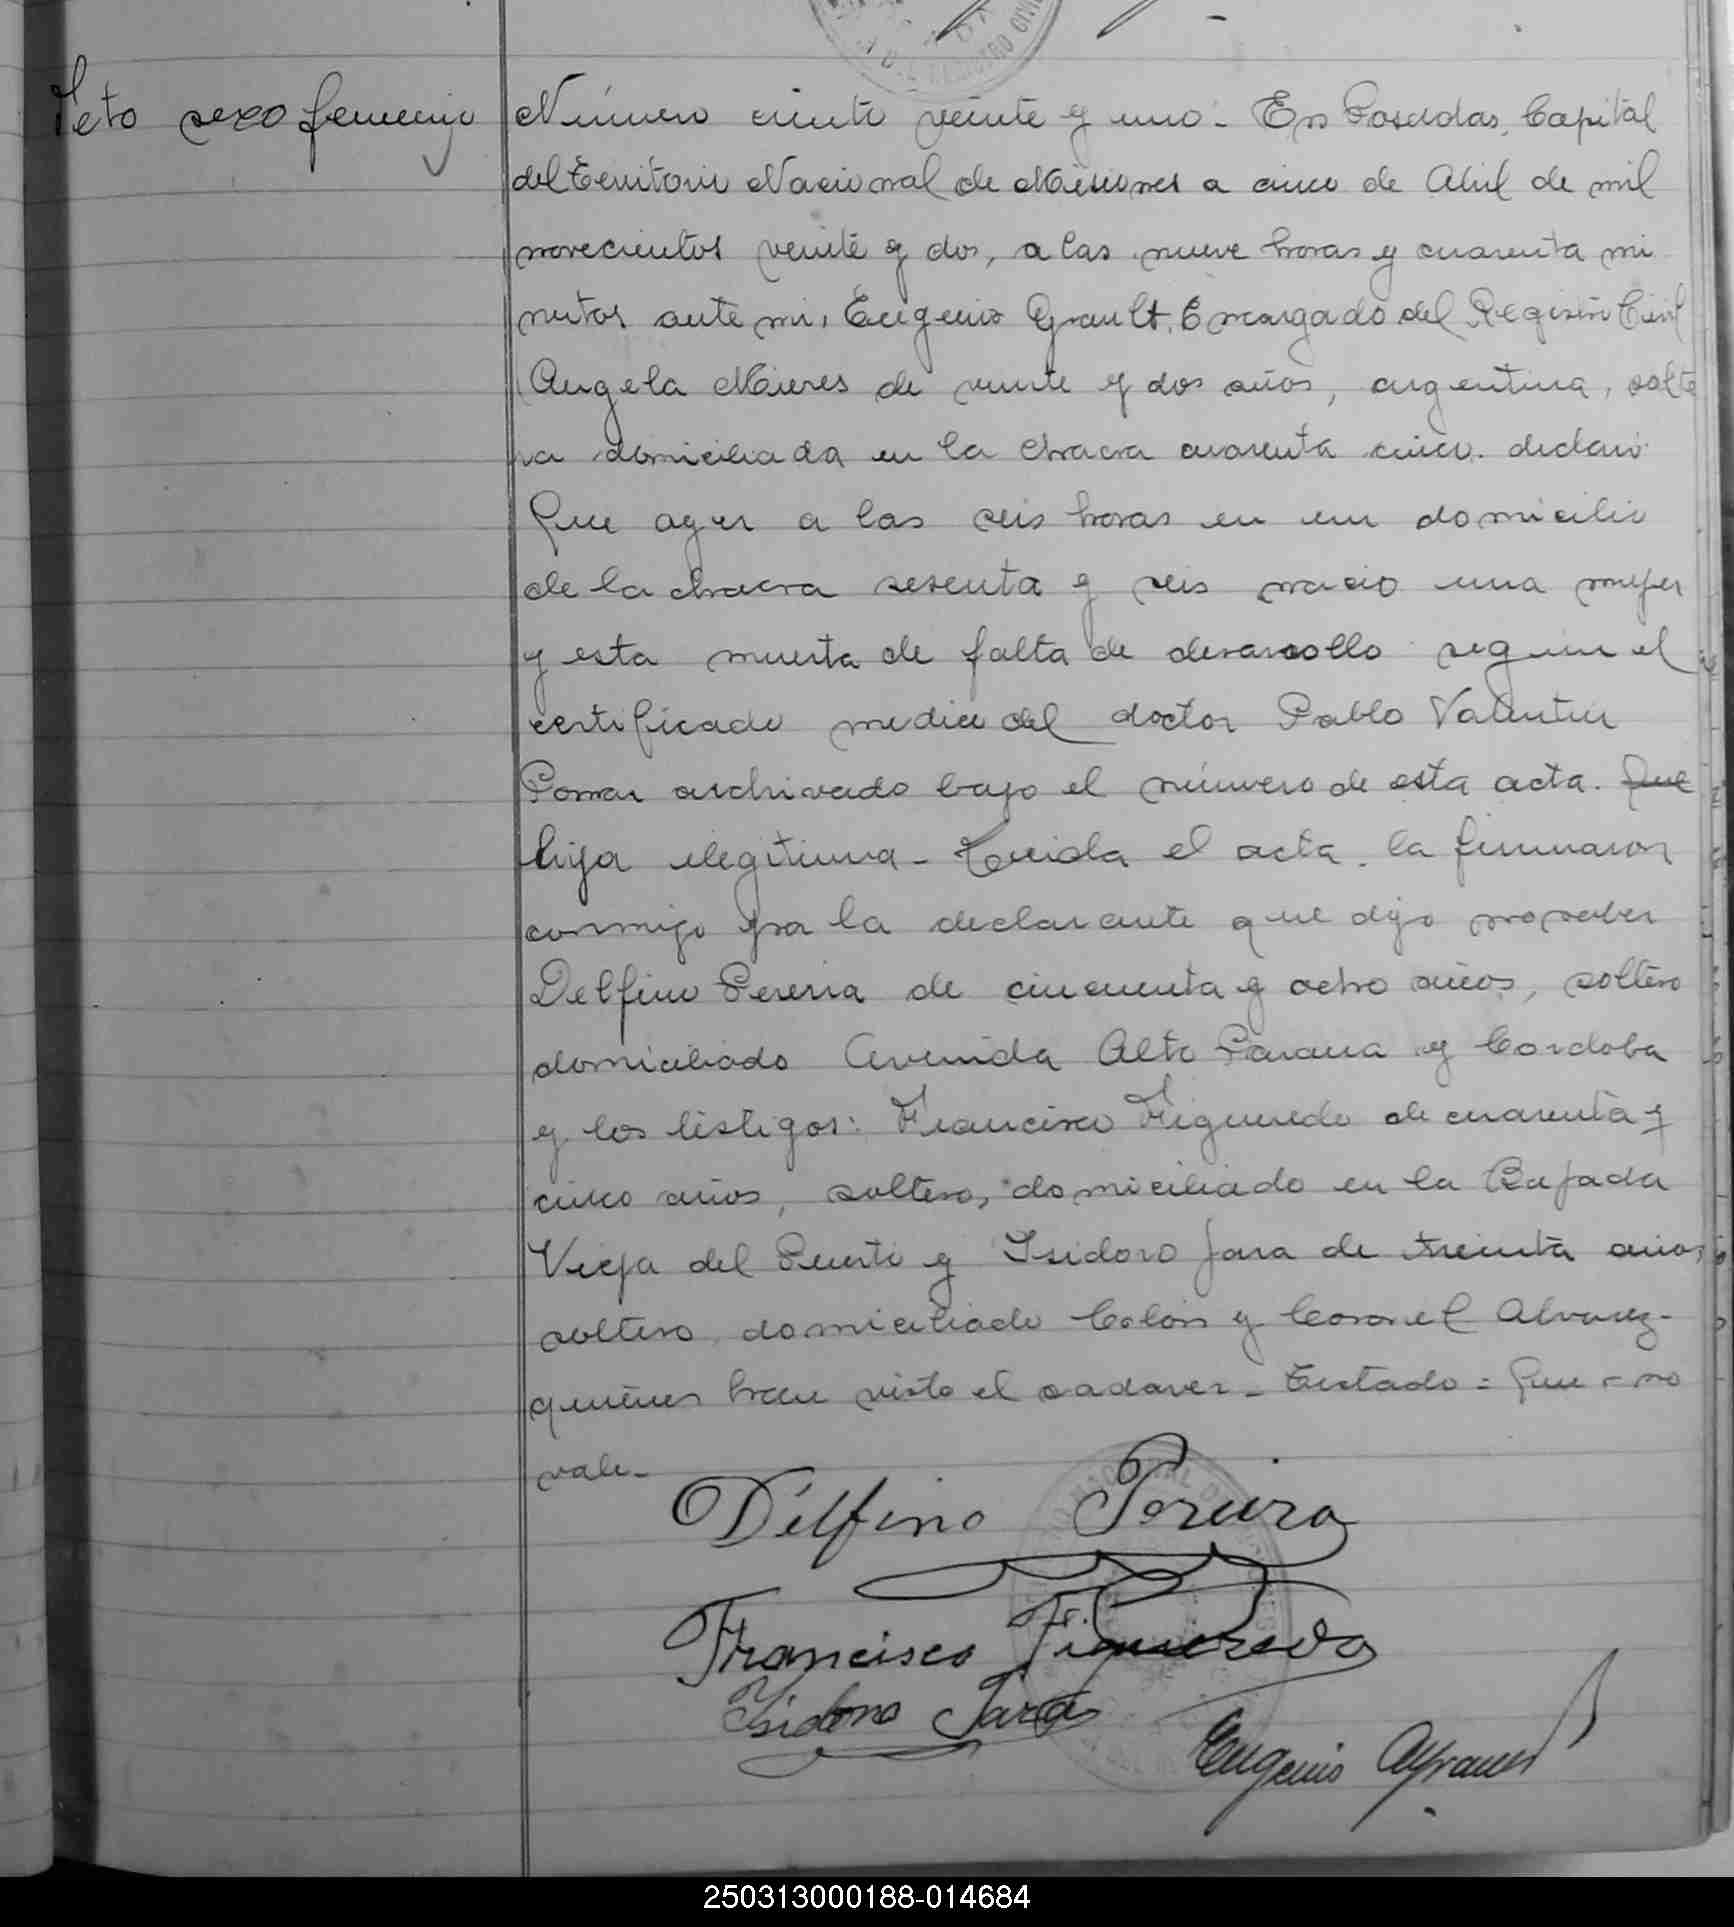 Feto sexo femenino
Número ciento veinte y uno. En Posadas, Capital
del Territorio Nacional de Misiones a cinco de Abril de mil
novecientos veinte y dos, a las nueve horas y cuarenta mi
nutos ante mi, Eugenio Encargado del Registro Civil
Angela Mieres de veinte y dos años, argentina, solte
ra domiciliada en la chacra cuarenta cinco. declaró
Que ayer a las seis horas en un domicilio
de la chacra sesenta y seis nacio una mujer
y esta muerta de falta de desarrollo segun el
certificado medico del doctor Pablo Valentin
archivado bajo el número de esta acta. Que
hija ilegitima - Leida el acta. la firmaron
conmigo por la declarante que dijo no saber
Delfino Pereira de cincuenta y ocho años, soltero
domiciliado Avenida Alto Parana y Cordoba
y los testigos: Francisco Figueredo de cuarenta y
cinco años, soltero, domiciliado en la Bajada
Vieja del Puerto y Isidoro Jara de treinta años
soltero, domiciliado Colón y Coronel Alvarez -
quienes han visto el cadaver - Testado = Que - no
vale -
Delfino Pereira
Francisco Figueredo
Isidoro Jara
Eugenio
250313000188-014684